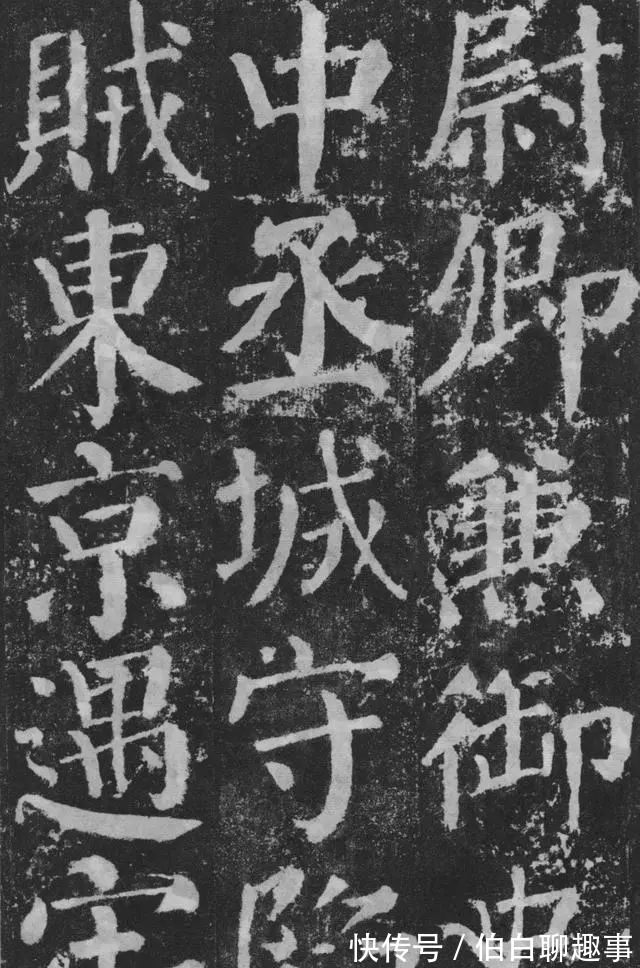 尉卿兼御史
中丞城守陷
賊東京遇害
快传号/伯白聊趣事